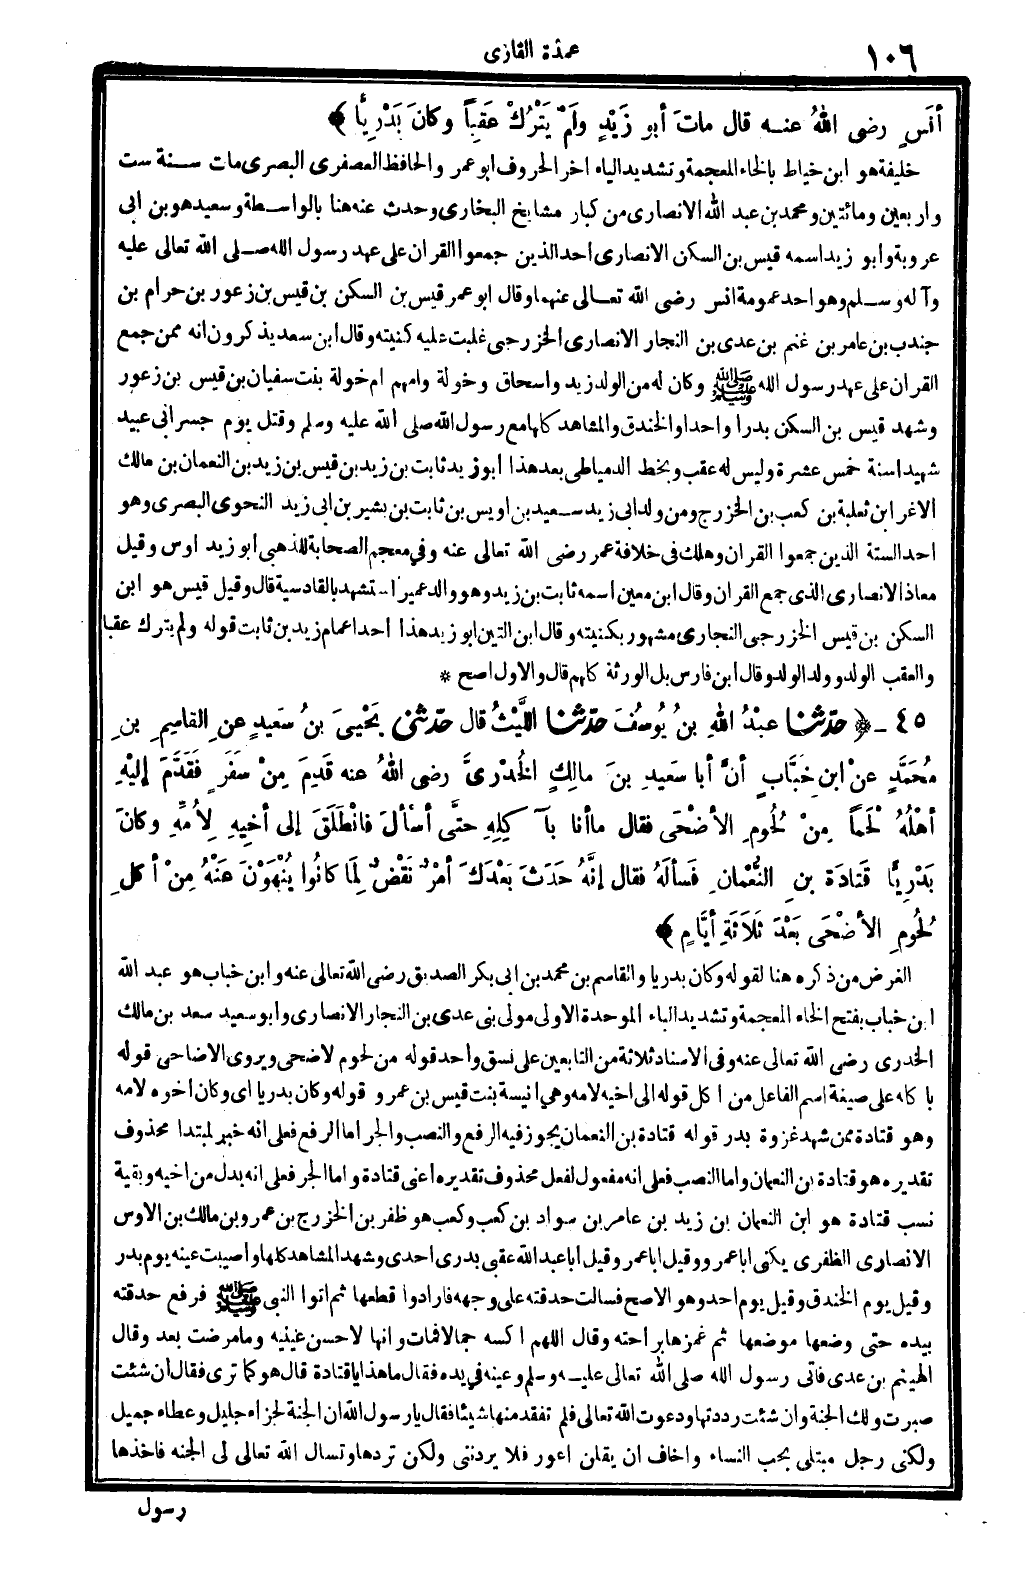 ١٠٦
عمدة القارى
أنَسٍ رضى اللهُ عنــه قال ماتَ أبو زَيْدٍ ولَمْ يَتْرُكْ عَقِباً وكانَ بَدْرِيًّا ﴾
خليفة هو ابن خياط بالخاء المعجمة وتشديد الياء اخر الحروف ابو عمر والحافظ العصفرى البصرى مات سنة ست
واربعين ومائتين ومحمد بن عبد الله الانصارى من كبار مشايخ البخارى وحدث عنه هنا بالواسطة وسعيد هو بن ابى
عروبة وابو زيد اسمه قيس بن السكن الانصارى احد الذين جمعوا القران على عهد رسول الله صلى الله تعالى عليه
وآله وسلم وهو احد عمومة انس رضى الله تعالى عنهما وقال ابو عمر قيس بن السكن بن قيس بن زعور بن حرام بن
جندب بن عامر بن غنم بن عدى بن النجار الانصارى الخزرجى غلبت عليه كنيته وقال ابن سعد يذكرون انه ممن جمع
القران على عهد رسول الله ﷺ وكان له من الولد زيد واسحاق وخولة وامهم ام خولة بنت سفيان بن قيس بن زعور
وشهد قيس بن السكن بدرا واحدا والخندق والمشاهد كلها مع رسول الله صلى الله عليه وسلم وقتل يوم جسر ابى عبيد
شهيدا سنة خمس عشرة وليس له عقب وبخط الدمياطى بعد هذا ابوزيد ثابت بن زيد بن قيس بن زيد بن النعمان بن مالك
الاغر ابن ثعلبة بن كعب بن الخزرج ومن ولد ابى زيد سعيد بن اويس بن ثابت بن بشير بن ابى زيد النحوى البصرى وهو
احد الستة الذين جمعوا القران وهلك فى خلافة عمر رضى الله تعالى عنه وفي معجم الصحابة للذهبى ابو زيد اوس وقيل
معاذ الانصارى الذى جمع القران وقال ابن معين اسمه ثابت بن زيد وهو والد عمير استشهد بالقادسية قال وقيل قيس هو ابن
السكن بن قيس الخزرجى النجارى مشهور بكنيته وقال ابن التين ابو زيد هذا احد اعمام زيد بن ثابت قوله ولم يترك عقبا
والعقب الولد وولد الولد وقال ابن فارس بل الورثة كلهم قال والاول اصح *
٤٥ - ﴿ حدّثنا عبْدُ اللهِ بنُ يُوسُفَ حدّثنا اللّيْثُ قال حدّثنى يَحْيىَ بنُ سَعيدٍ عنِ القاسِمِ بنِ
مُحَمَّدٍ عنْ ابنِ خَبَّابٍ أنَّ أبا سَعِيدِ بنَ مالِكٍ الخُدْرِىَّ رضى اللهُ عنه قَدِمَ مِنْ سَفَرٍ فَقَدَّمَ إليْهِ
أهْلُهُ لَحْماً مِنْ لُحُومِ الأضْحَى فقال ماأنا بآكِلِهِ حتَّى أسْألَ فانْطَلَقَ إلى أخيهِ لِأُمِّهِ وكانَ
بَدْرِيًّا قَتادَةَ بنِ النُّعْمانِ فَسألَهُ فقال إنَّهُ حَدَثَ بَعْدَكَ أمْرٌ نَقْضٌ لِمَا كانُوا يُنْهَوْنَ عَنْهُ مِنْ أكلِ
لُحُومِ الأضْحَى بَعْدَ ثَلَاثَةِ أيَّامٍ ﴾
الغرض من ذكره هنا لقوله وكان بدريا والقاسم بن محمد بن ابى بكر الصديق رضى الله تعالى عنه وابن خباب هو عبد الله
ابن خباب بفتح الخاء المعجمة وتشديد الباء الموحدة الاولى مولى بنى عدى بن النجار الانصارى وابو سعيد سعد بن مالك
الخدرى رضى الله تعالى عنه وفى الاسناد ثلاثة من التابعين على نسق واحد قوله من لحوم لاضحى ويروى الاضاحى قوله
باكله على صيغة اسم الفاعل من اكل قوله الى اخيه لامه وهي انيسة بنت قيس بن عمرو قوله وكان بدريا اى وكان اخوه لامه
وهو قتادة ممن شهد غزوة بدر قوله قتادة بن النعمان يجوز فيه الرفع والنصب والجر اما الرفع فعلى انه خبر لمبتدا محذوف
تقديره هو قتادة بن النعمان واما النصب فعلى انه مفعول لفعل محذوف تقديره اعنى قتادة واما الجر فعلى انه بدل من اخيه وبقية
نسب قتادة هو ابن النعمان بن زيد بن عامر بن سواد بن كعب وكعب هو ظفر بن الخزرج بن عمرو بن مالك بن الاوس
الانصارى الظفرى يكنى ابا عمرو وقيل ابا عمر وقيل ابا عبد الله عقبى بدرى احدى وشهد المشاهد كلها واصيبت عينه يوم بدر
وقيل يوم الخندق وقيل يوم احد وهو الاصح فسالت حدقته على وجهه فارادوا قطعها ثم اتوا النبى ﷺ فرفع حدقته
بيده حتى وضعها موضعها ثم غمزها براحته وقال اللهم اكسه جمالا فمات وانها لاحسن عينيه ومامرضت بعد وقال
الهيثم بن عدى فاتى رسول الله صلى الله تعالى عليه وسلم وعينه فى يده فقال ما هذا ياقتادة قال هو كما ترى فقال ان شئت
صبرت ولك الجنة وان شئت رددتها ودعوت الله تعالى فلم تفقد منها شيئا فقال يارسول الله ان الجنة لجزاء جليل وعطاء جميل
ولكنى رجل مبتلى بحب النساء واخاف ان يقلن اعور فلا يردننى ولكن تردها وتسال الله تعالى لى الجنه فاخذها
رسول